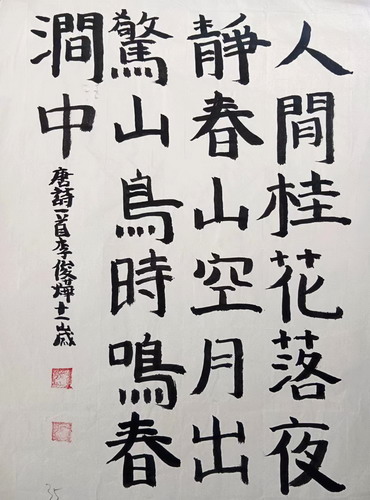 人閒桂花落夜
靜春山空月出
驚山鳥時鳴春
澗中
唐詩一首李俊燁十一歲
35